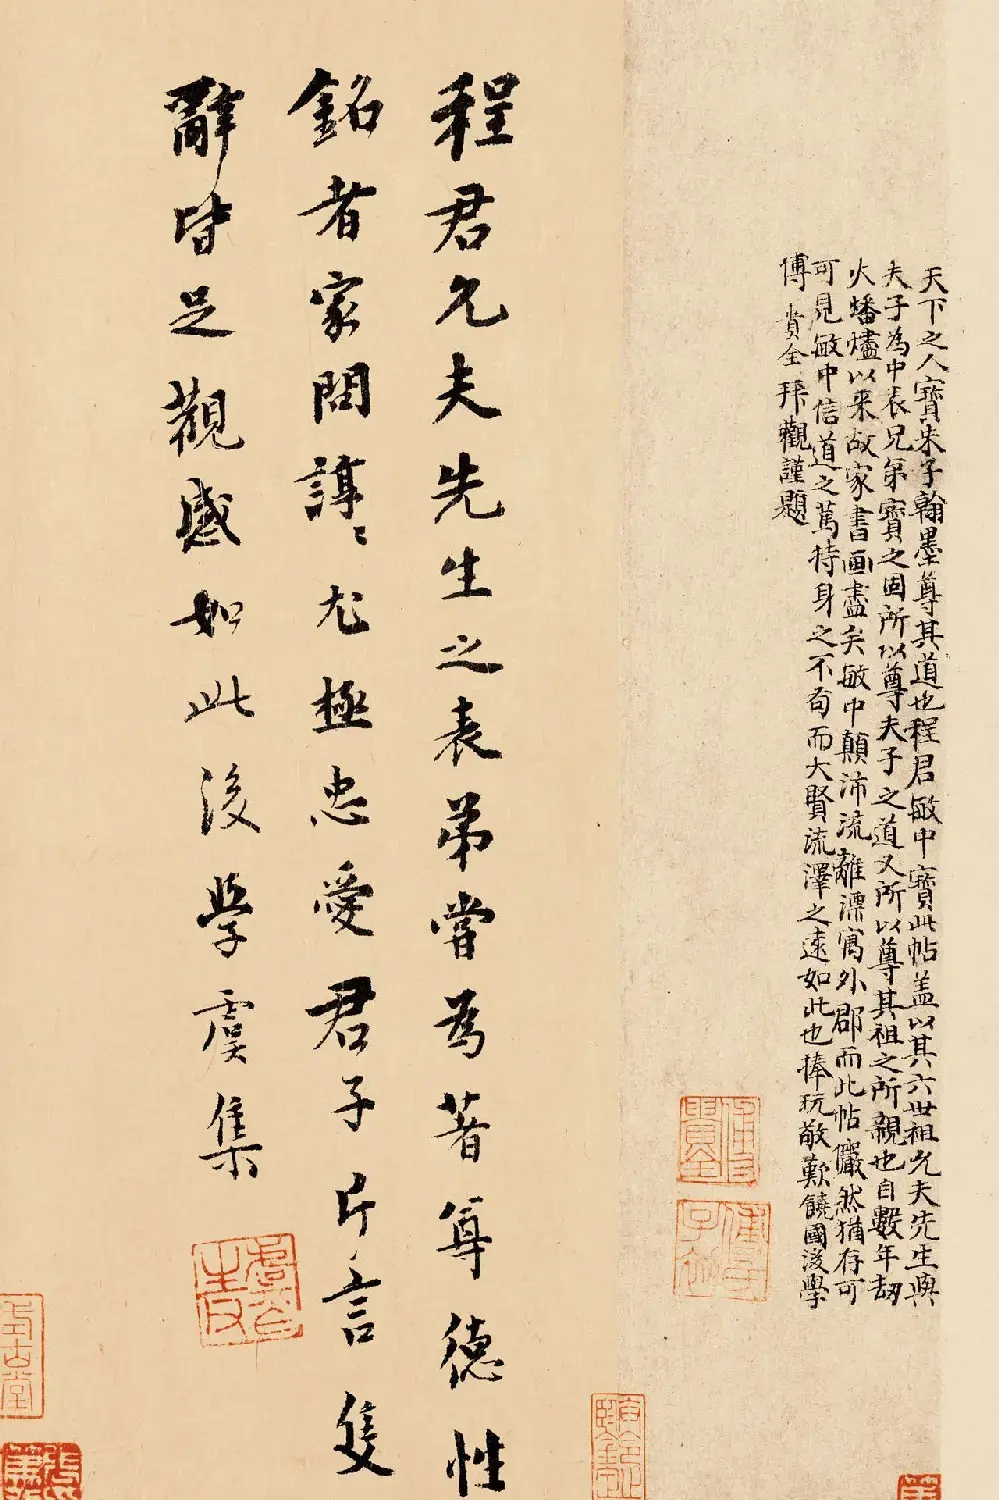 天下之人寶朱子翰墨尊其道也程君敏中寶此帖盖以其六世祖允夫先生與
夫子為中表兄弟寶之固所以尊夫子之道又所以尊其祖之所親也自數年劫
火蟠燼以来故家書画盡矣敏中顛沛流離漂寓外郡而此帖儼然猶存可
可見敏中信道之萬持身之不苟而大賢流澤之遠如此也捧玩敬歎饒國後學
傅貴全拜觀謹題
程君允夫先生之表弟嘗為著尊德性
銘者家問諄〻尤極忠愛君子片言隻
辭皆足觀感如此後學虞集